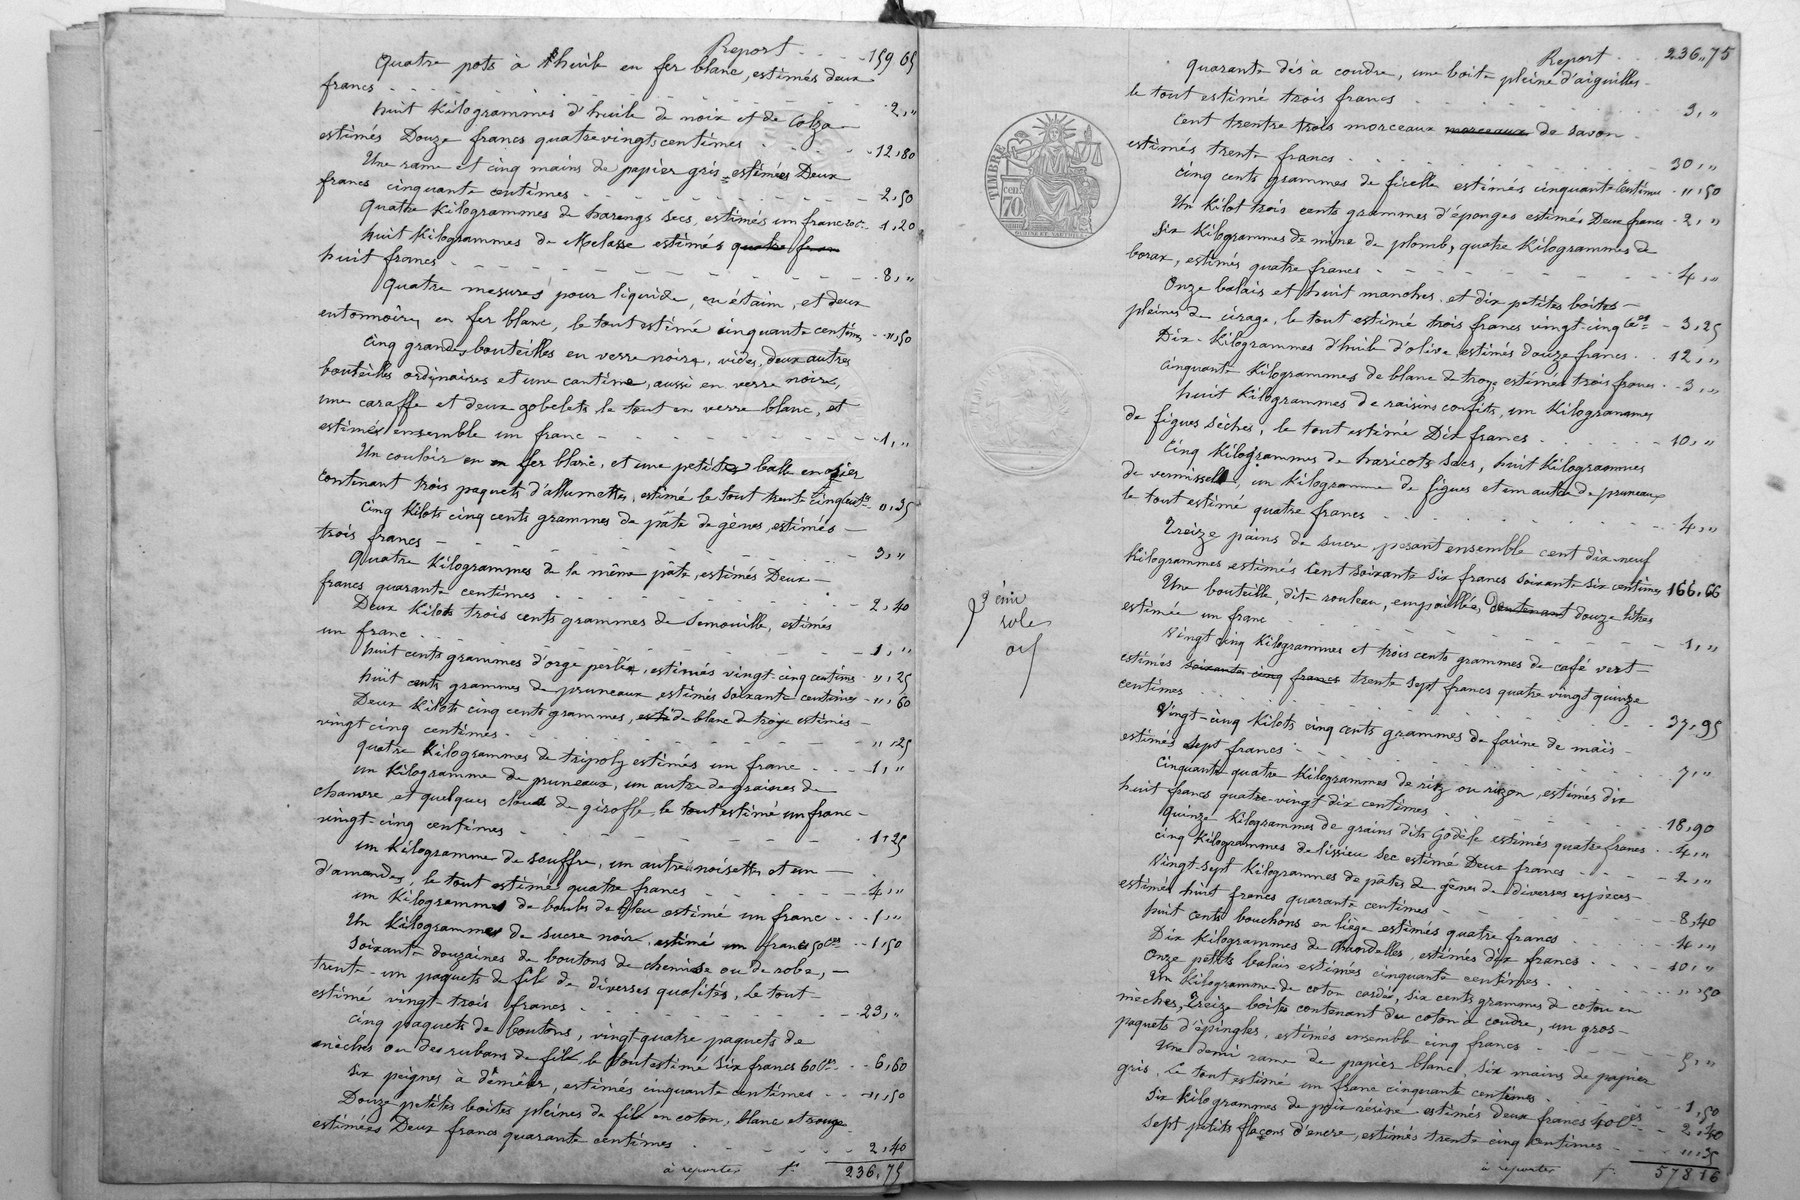 Report . . . 159 65
Quatre pots à huile en fer blanc, estimés deux
francs . . . 2, "
huit Kilogrammes d'huile de noix et de Colza
estimés Douze francs quatrevingts centimes . . . 12,80
Une rame et cinq mains de papier gris estimées Deux
francs cinquante centimes . . . 2,50
Quatre Kilogrammes de harengs secs, estimés un franc 20c. 1,20
huit Kilogrammes de Melasse estimés quatre fran
huit francs . . . 8, "
Quatre mesures pour liquide, en étain, et deux
entonnoirs, en fer blanc, le tout estimé cinquante centimes . . ",50
Cinq grandes bouteilles en verre noire, vides, deux autres
bouteilles ordinaires et une cantine, aussi en verre noire,
une caraffe et deux gobelets le tout en verre blanc, et
estimés ensemble un franc . . . 1, "
Un couloir en fer blanc, et une petite balle en osier
contenant trois paquets d'allumettes, estimé le tout trente cinq cent.es ",35
Cinq Kilots cinq cents grammes de pâte de gênes, estimés —
trois francs . . . 3, "
Quatre Kilogrammes de la même pâte, estimés Deux —
francs quarante centimes . . . 2,40
Deux Kilots trois cents grammes de Semouille, estimés
un franc . . . 1, "
huit cents grammes d'orge perlée, estimés vingt-cinq centimes . ",25
huit cents grammes de pruneaux estimés soixante centimes . ",60
Deux Kilots cinq cents grammes, de blanc de troye estimés —
vingt cinq centimes . . . ",25
quatre Kilogrammes de tripoly estimés un franc . . . 1, "
un Kilogramme de pruneaux, un autre de graines de
chanvre, et quelques clous de giroffle, le tout estimé un franc —
vingt-cinq centimes . . . 1,25
un Kilogramme de souffre, un autre noisettes et un —
d'amandes, le tout estimé quatre francs . . . 4, "
un Kilogramme de boules de bleu estimé un franc . . . 1, "
Un Kilogramme de sucre noir, estimé un franc 50 ces . . 1,50
Soixante douzaines de boutons de chemise ou de robe, —
trente-un paquets de fil de diverses qualités, Le tout —
estimé vingt-trois francs . . . 23, "
Cinq paquets de boutons, vingt-quatre paquets de
mèches ou des rubans de fil, le tout estimé six francs 60 ces . . 6,60
Six peignes à démêler, estimés cinquante centimes . . . ",50
Douze petites boites pleines de fil en coton, blanc et rouge
estimées Deux francs quarante centimes . . . 2,40
à reporter f. 236,75
Report . . . 236,75
Quarante dés à coudre, une boite pleine d'aiguilles —
le tout estimé trois francs . . . 3, "
Cent trentre trois morceaux morceaux de savon
estimés trente francs . . . 30, "
Cinq cents grammes de ficelle estimés cinquante Centimes . ",50
Un Kilot trois cents grammes d'éponges estimés Deux francs . 2, "
Six Kilogrammes de mine de plomb, quatre Kilogrammes de
borax, estimés quatre francs . . . 4, "
Onze balais et huit manches et dix petites boites —
pleines de cirage, le tout estimé trois francs vingt-cinq Ces . 3,25
Dix-Kilogrammes d'huile d'olive estimés douze francs . . 12, "
Cinquante Kilogrammes de blanc de troye estimés trois francs . 3, "
huit Kilogrammes de raisins confits, un Kilogrammes
de figues sèches, le tout estimé Dix francs . . . 10, "
Cinq Kilogrammes de haricots secs, huit Kilogrammes
de vermisselle, un Kilogramme de figues et un autre de pruneaux
le tout estimé quatre francs . . . 4, "
Treize pains de sucre, pesant ensemble cent dix-neuf
Kilogrammes estimés Cent soixante six francs soixante six centimes 166,66
Une bouteille, dite rouleau, empaillée, contenant douze litres
estimée un franc . . . 1, "
Vingt cinq Kilogrammes et trois cents grammes de café vert —
estimés soixante cinq francs trente sept francs quatre vingt quinze
centimes . . . 37,95
Vingt-cinq Kilots cinq cents grammes de farine de maïs —
estimés sept francs . . . 7, "
Cinquante quatre Kilogrammes de riz ou rizon, estimés dix
huit francs quatre-vingt dix centimes . . . 18,90
Quinze Kilogrammes de grains dits Godèfe estimés quatre francs . 4, "
Cinq Kilogrammes de lissieu sec estimé Deux francs . . . 2, "
Vingt-sept Kilogrammes de pâtes de gênes de diverses espèces —
estimés huit francs quarante centimes . . . 8,40
huit cents bouchons en liège estimés quatre francs . . . 4, "
Dix Kilogrammes de chandelles, estimés dix francs . . . 10, "
Onze petits balais estimés cinquante centimes . . . ",50
Un Kilogramme de coton cardé, six cents grammes de coton en
mèches, Treize boites contenant du coton à coudre, un gros —
paquets d'épingles, estimés ensemble cinq francs . . . 5, "
Une demi rame de papier blanc, six mains de papier
gris, Le tout estimé un franc cinquante centimes . . . 1,50
Six Kilogrammes de poix résine estimés deux francs 40 Ces . . 2,40
Sept petits flaçons d'encre, estimés trente cinq centimes . . . ",35
à reporter f. 578 16
TIMBRE
70
cen